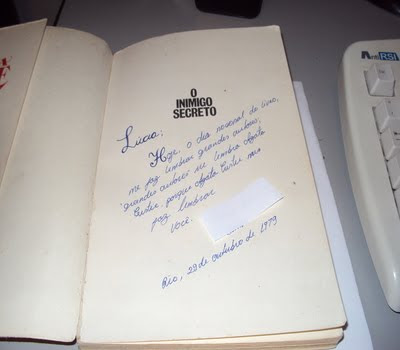 O
INIMIGO
SECRETO
Lúcia:
Hoje, o dia nacional do livro,
me faz lembrar grandes autores;
grandes autores me lembra Agata
Cristie, porque Agata Cristie me
faz lembrar
você.
Rio, 29 de outubro de 1979
Anti RSI